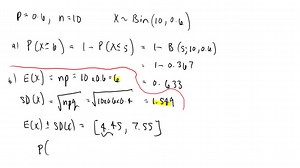 P=0.6, n=10 X~Bin(10,0.6)
a) P(X≥6) = 1 - P(X≤5) = 1 - B(5;10,0.6)
= 1 - 0.367
= 0.633
b) E(X) = np = 10×0.6 = 6
SD(X) = √npq = √10×0.6×0.4 = 1.549
E(X) ± SD(X) = [4.45, 7.55]
P(